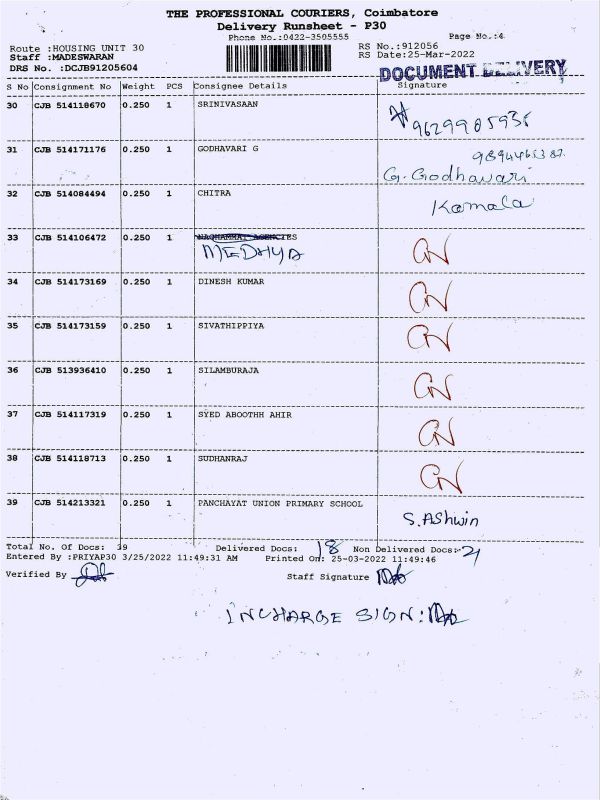 THE PROFESSIONAL COURIERS, Coimbatore
Delivery Runsheet - P30
Phone No.:0422-3505555
Page No.:4
Route :HOUSING UNIT 30
RS No.:912056
Staff :MADESWARAN
RS Date:25-Mar-2022
DRS No. :DCJB91205604
DOCUMENT DELIVERY
S No Consignment No Weight PCS Consignee Details Signature
30 CJB 514118670 0.250 1 SRINIVASAAN
9629985935
31 CJB 514171176 0.250 1 GODHAVARI G
G. Godhavari
32 CJB 514084494 0.250 1 CHITRA Kamala
33 CJB 514106472 0.250 1 AGENCIES
MEDHYA
34 CJB 514173169 0.250 1 DINESH KUMAR
35 CJB 514173159 0.250 1 SIVATHIPPIYA
36 CJB 513936410 0.250 1 SILAMBURAJA
37 CJB 514117319 0.250 1 SYED ABOOTHH AHIR
38 CJB 514118713 0.250 1 SUDHANRAJ
39 CJB 514213321 0.250 1 PANCHAYAT UNION PRIMARY SCHOOL
S.AShwin
Total No. Of Docs: 39 Delivered Docs: 18 Non Delivered Docs:- 21
Entered By :PRIYAP30 3/25/2022 11:49:31 AM Printed On: 25-03-2022 11:49:46
Verified By
Staff Signature
INCHARGE SIGN: